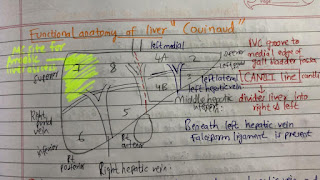 Functional anatomy of liver "Couinaud"
MC site for
Amoebic
liver
superior
7
8
left medial
4A
2
superior
IVC groove to
medial edge of
gall bladder fossa
left lateral
left hepatic vein
CANTLI line
divides liver into
right & left
4B
3
Middle hepatic
Right
vein
5
6
inferior
Rt
posterior
Rt
anterior
Right hepatic vein.
Beneath left hepatic vein
Falciform ligament is present